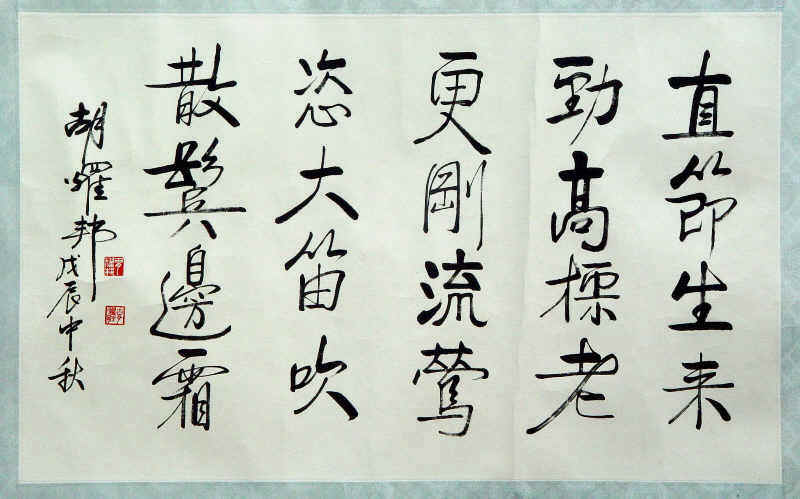 直節生来
勁高標老
更剛流莺
恣大笛吹
散鬓邊霜
胡耀邦
戊辰中秋